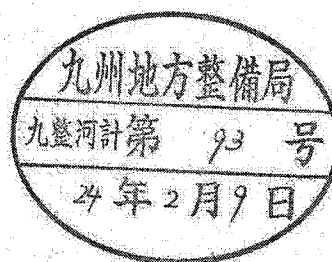 九州地方整備局
九整河計第 93 号
24 年 2 月 9 日